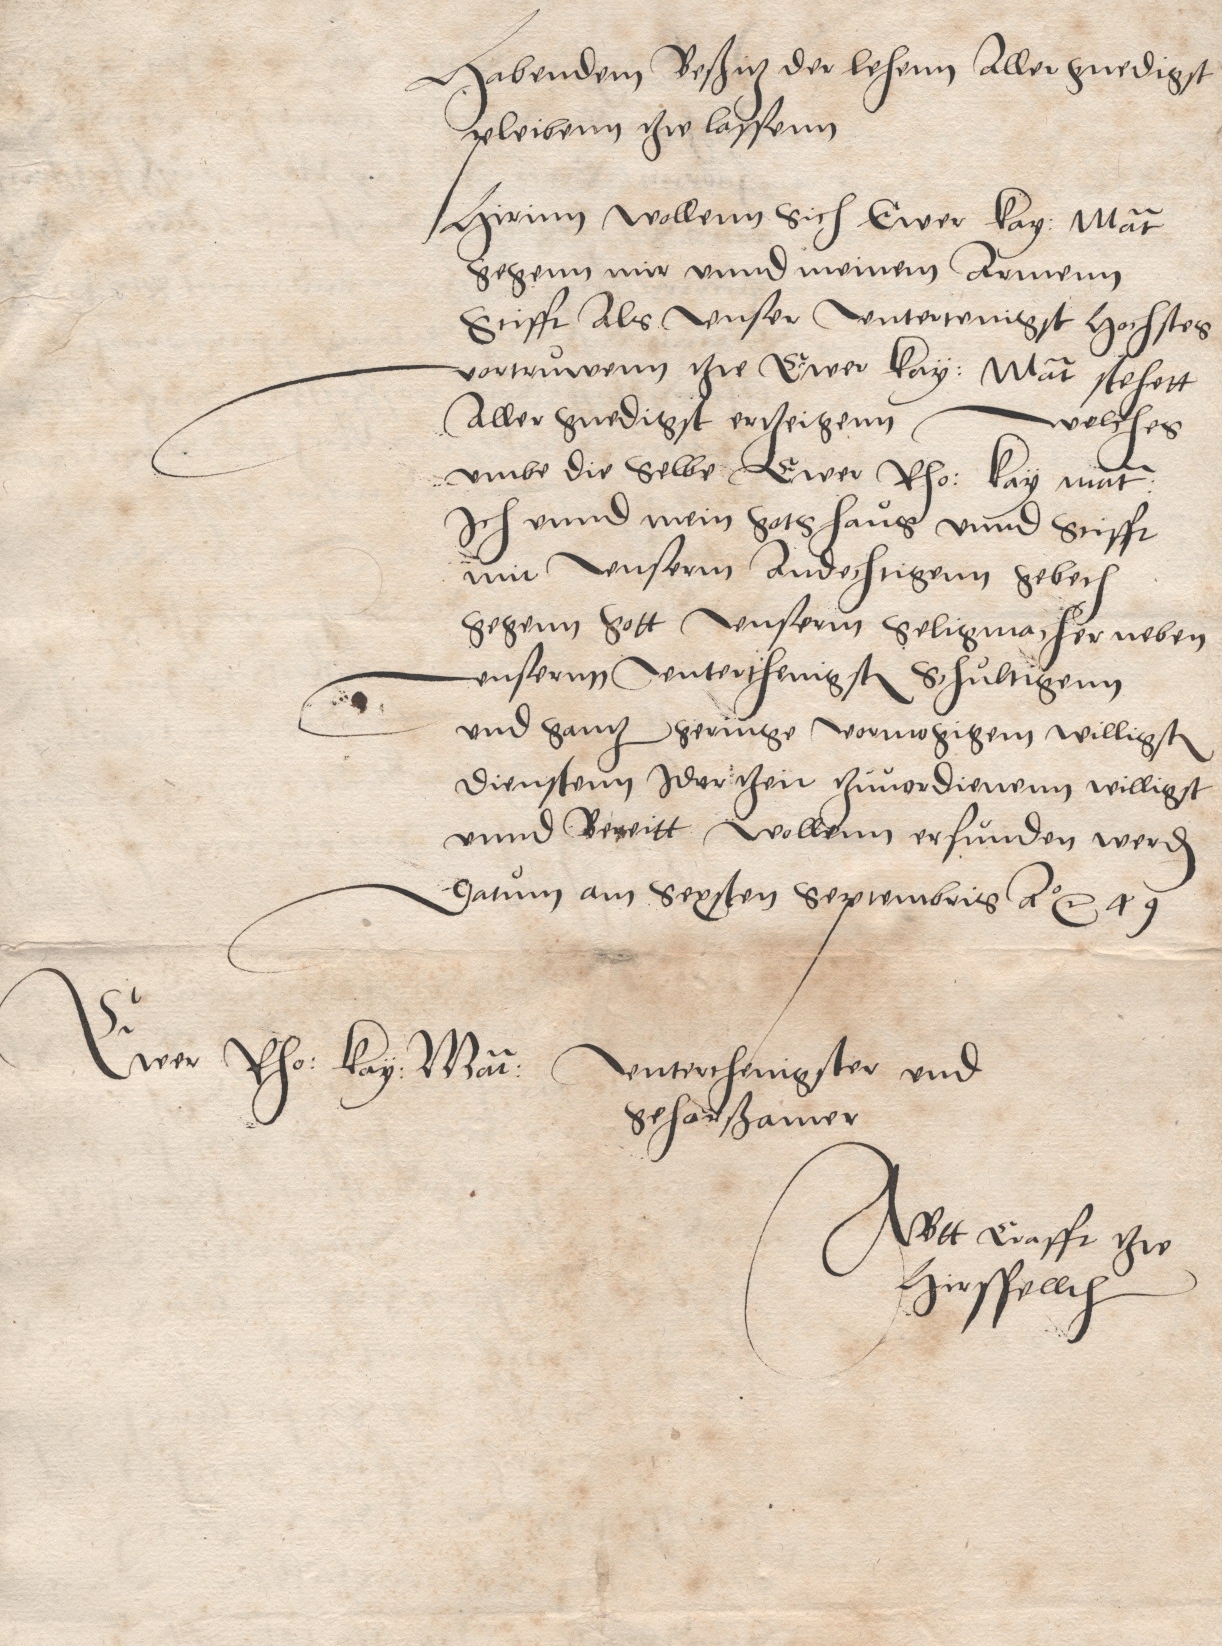 Habendem Beßitz der lehenn Aller gnedigst
pleibenn tzw lassenn
Hirinn wollenn sich Ewer kay: Mat
gegenn mir vnnd meinem Armenn
Stifft Als vnser vntertenigst hochstes
vortruwenn tzw Ewer kay: Mat stehett
Aller gnedigst ertzeigenn welches
vmbe die selbe Ewer Rho: kay mat:
Ich vnnd mein gotshaus vnnd Stifft
mit vnserm Andechtigenn gebeth
gegenn gott vnserm seligmacher neben
vnsernn vnterthenigst schultigenn
vnd gantz geringe vormogigem willigst
dienstenn Ider tzeit tzuuordienenn willigst
vnnd Bereitt wollenn erfunden werd
Datum am sexsten Septembris Ao 49
Ewer Rho: kay: Mat: vnterthenigster vnd
gehorßamer
Abtt Crafft tzw
Hirsffellth